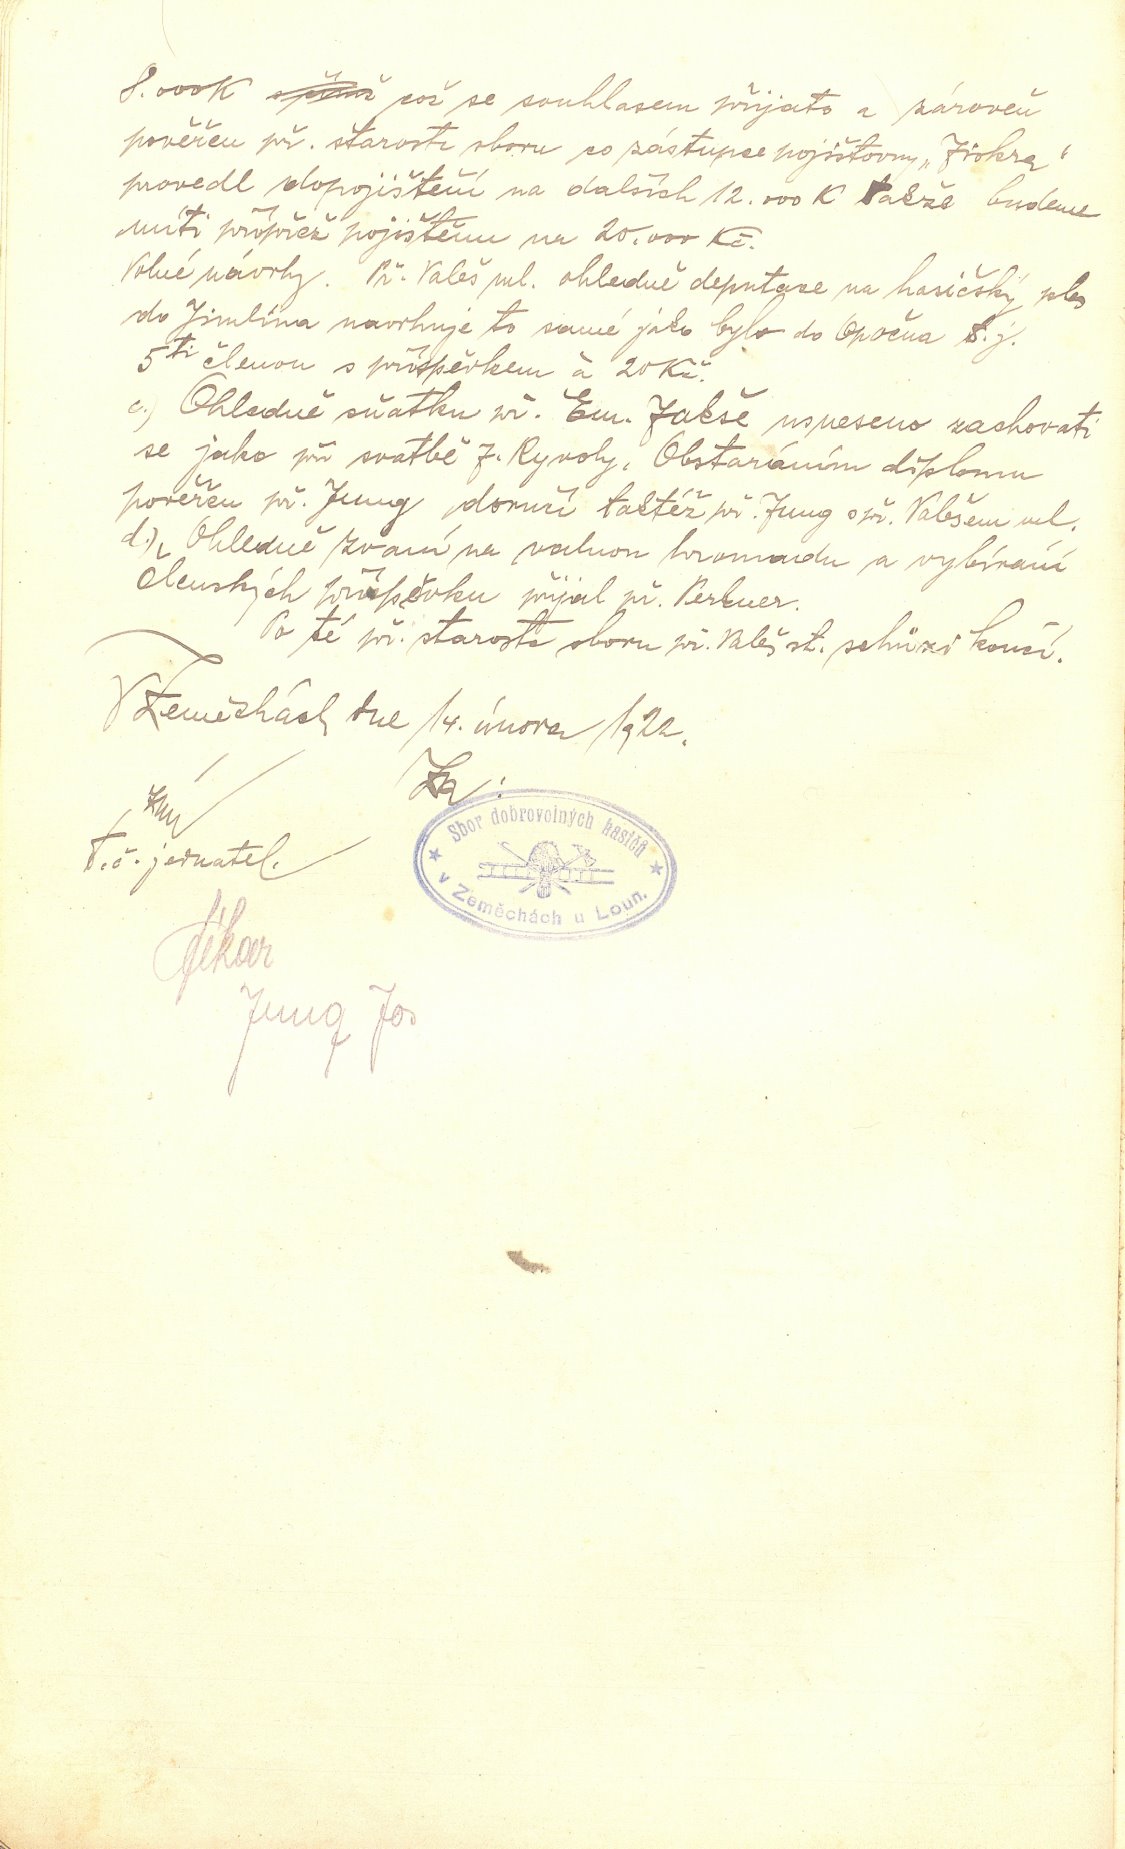 8.000K což se souhlasem přijato a zároveň
pověřen př. starosta sboru co zástupce pojišťovny „Jiskra“
provedl dopojištění na dalších 12.000 K takže budeme
míti přípřež pojištěnu na 20.000 Kč.
Volné návrhy. Př. Valeš ml. ohledně deputace na hasičský ples
do Jimlína navrhuje to samé jako bylo do Opočna t.j.
5ti členou s příspěvkem à 20 Kč.
c.) Ohledně sňatku př. Em. Jakše usneseno zachovati
se jako při svatbě J. Ryvoly. Obstaráním diplomu
pověřen př. Jung doručí taktéž př. Jung s př. Valešem ml.
d.) Ohledně zvaní na valnou hromadu a vybírání
členských příspěvku přijal př. Perkner.
Po té př. starosta sboru př. Valeš st. schůzi končí.
V Zeměchách dne 14. února 1922.
Za:
t.č. jednatel.
Sbor dobrovolných hasičů
v Zeměchách u Loun.
Jung Jos